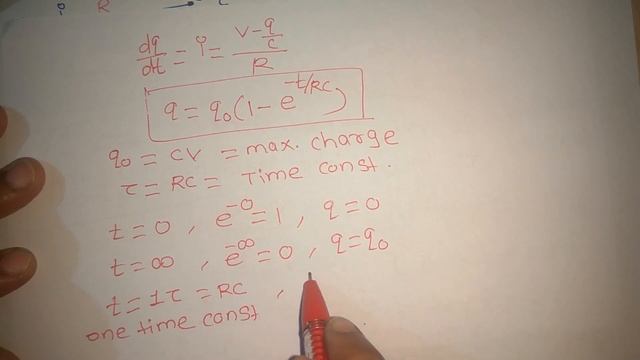 R
dq/dt = i = (V - q/c)/R
q = q₀(1 - e^(-t/RC))
q₀ = CV = max. charge
τ = RC = Time const.
t = 0 , e^(-0) = 1 , q = 0
t = ∞ , e^(-∞) = 0 , q = q₀
t = 1τ = RC ,
one time const